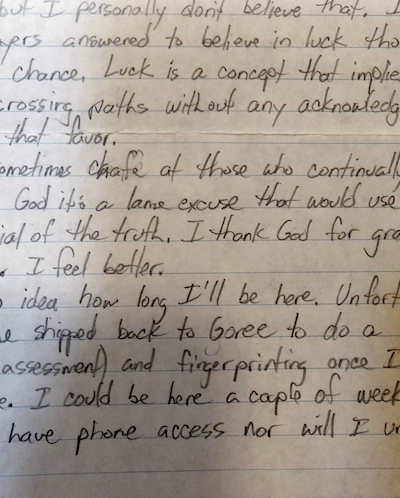 but I personally don't believe that. I
yers answered to believe in luck tho
chance. Luck is a concept that implie
crossing paths without any acknowledg
that favor.
ometimes chafe at those who continuall
God it's a lame excuse that would use
ial of the truth. I thank God for gra
. I feel better.
idea how long I'll be here. Unfort
e shipped back to Goree to do a
assessment) and fingerprinting once I
e. I could be here a caple of week
have phone access nor will I un